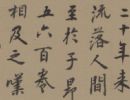 二十年来
流落人間
至於子昂
五六百卷
相及之嘆